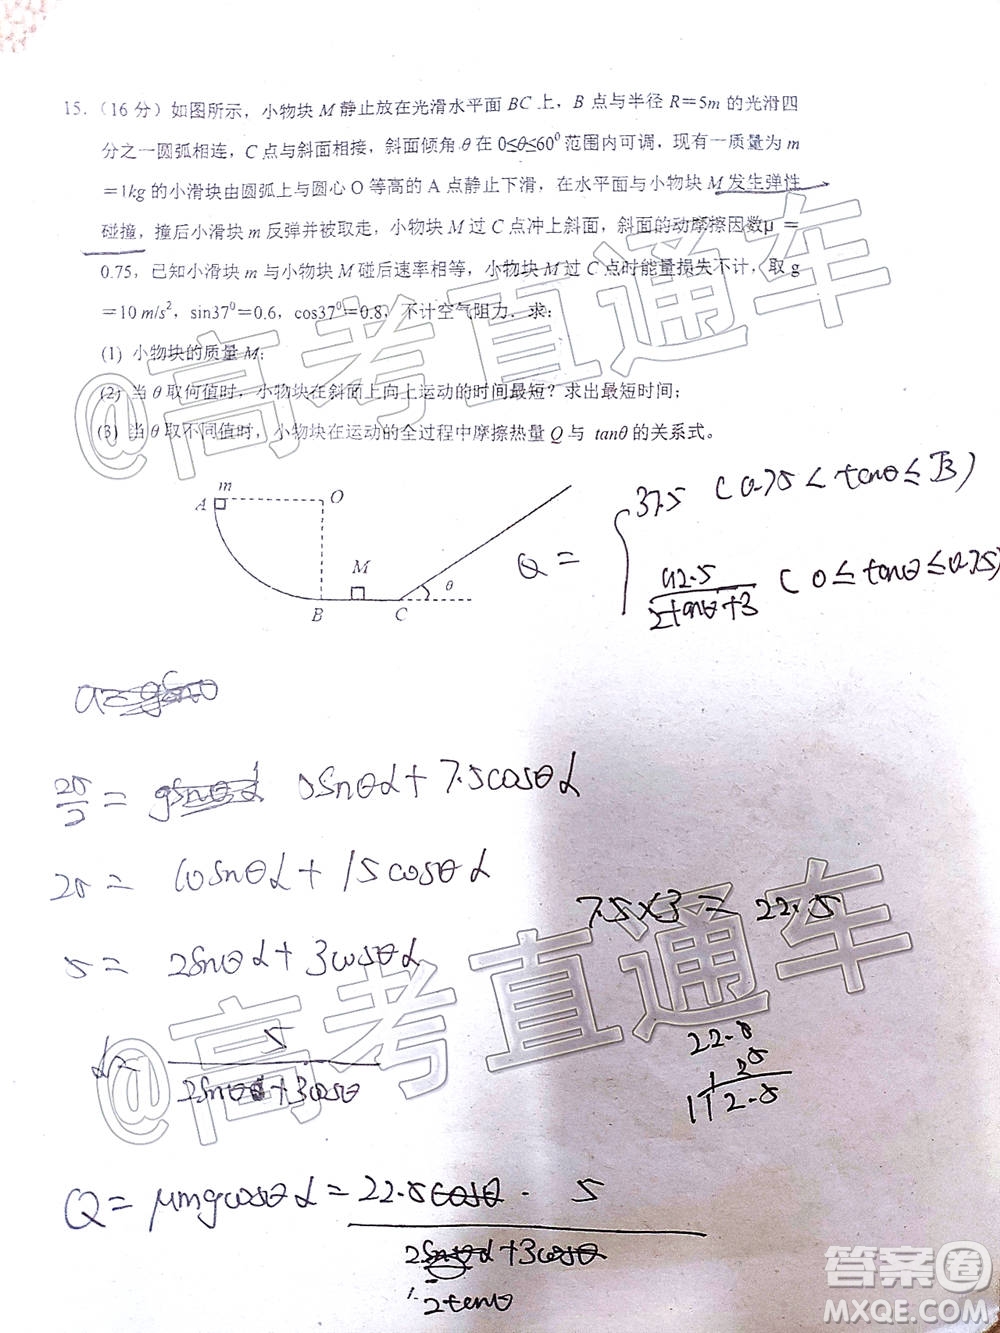 15.（16 分）如图所示，小物块 M 静止放在光滑水平面 BC 上，B 点与半径 R＝5m 的光滑四
分之一圆弧相连，C 点与斜面相接，斜面倾角 θ 在 0≤θ≤60⁰ 范围内可调，现有一质量为 m
＝1kg 的小滑块由圆弧上与圆心 O 等高的 A 点静止下滑，在水平面与小物块 M 发生弹性
碰撞，撞后小滑块 m 反弹并被取走，小物块 M 过 C 点冲上斜面，斜面的动摩擦因数μ ＝
0.75，已知小滑块 m 与小物块 M 碰后速率相等，小物块 M 过 C 点时能量损失不计，取 g
＝10 m/s²，sin37⁰＝0.6，cos37⁰＝0.8，不计空气阻力．求：
(1) 小物块的质量 M；
(2) 当 θ 取何值时，小物块在斜面上向上运动的时间最短？求出最短时间；
(3) 当 θ 取不同值时，小物块在运动的全过程中摩擦热量 Q 与 tanθ 的关系式。
A m O
M θ
B C
37.5 (0.75 < tanθ ≤ √3)
Q =
(0 ≤ tanθ ≤ 0.75)
2tanθ+3
7.5×3 = 22.5
5 = 2sinθ + 3cosθ
5
2sinθ + 3cosθ
22.5
112.5
Q = μmgcosθ = 22.5cosθ · 5
+3cosθ
2tanθ
@高考直通车
@高考直通车
答案圈
MXQE.COM